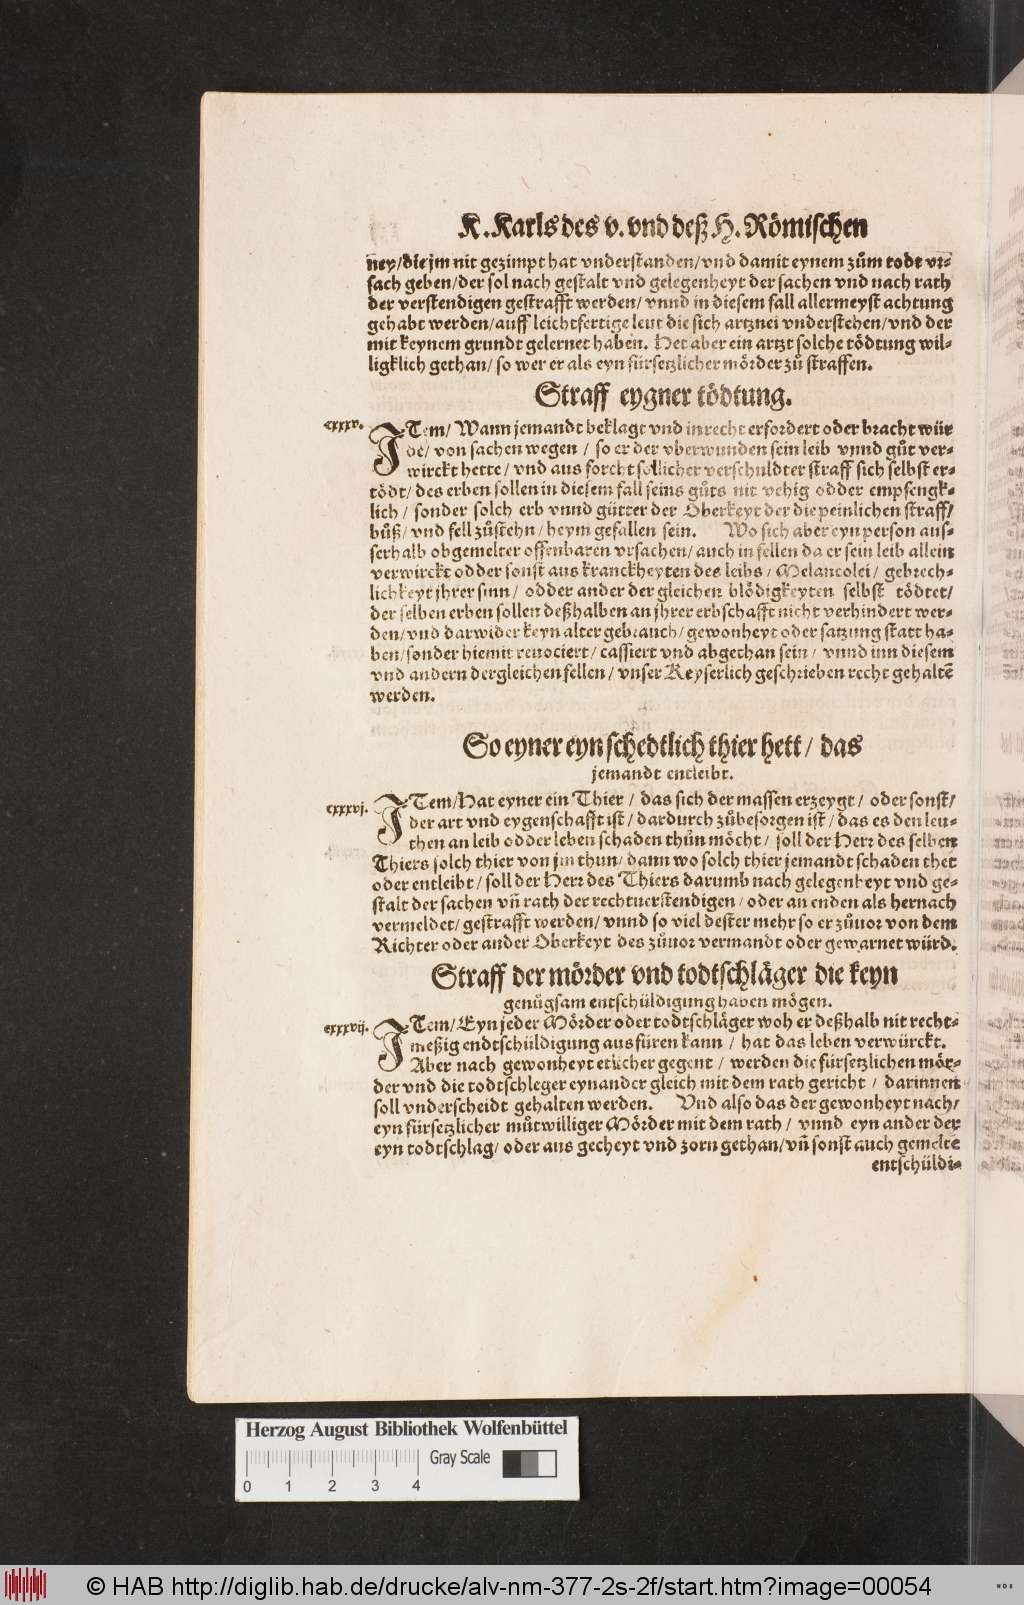 K. Karls des v. vnd deß H. Römischen
ney/ die jm nit gezimpt hat vnderstanden/ vnd damit eynem zům todt vr=
sach geben/ der sol nach gestalt vnd gelegenheyt der sachen vnd nach rath
der verstendigen gestrafft werden/ vnnd in diesem fall allermeyst achtung
gehabt werden/ auff leichtfertige leut die sich artznei vnderstehen/ vnd der
mit keynem grundt gelernet haben. Het aber ein artzt solche tödtung wil=
ligklich gethan/ so wer er als eyn fürsetzlicher mörder zů straffen.
Straff eygner tödtung.
cxxxv.
ITem/ Wann jemandt beklagt vnd in recht erfordert oder bracht wür
de/ von sachen wegen / so er der vberwunden sein leib vnnd gůt ver=
wirckt hette/ vnd aus forcht sollicher verschuldter straff sich selbst er=
tödt/ des erben sollen in diesem fall seins gůts nit vehig odder empfengk=
lich / sonder solch erb vnnd gütter der Oberkeyt der die peinlichen straff/
bůß/ vnd fell zůstehn/ heym gefallen sein. Wo sich aber eyn person aus=
serhalb obgemelter offenbaren vrsachen/ auch in fellen da er sein leib allein
verwirckt odder sonst aus kranckheyten des leibs / Melancolei / gebrech=
lichkeyt jhrer sinn / odder ander der gleichen blödigkeyten selbst tödtet/
der selben erben sollen deßhalben an jhrer erbschafft nicht verhindert wer=
den/ vnd darwider keyn alter gebrauch/ gewonheyt oder satzung statt ha=
ben/ sonder hiemit reuociert/ cassiert vnd abgethan sein / vnnd inn diesem
vnd andern dergleichen fellen / vnser Keyserlich geschrieben recht gehaltē
werden.
So eyner eyn schedtlich thier hett / das
jemandt entleibt.
cxxxvj.
ITem/ Hat eyner ein Thier / das sich der massen erzeygt / oder sonst/
der art vnd eygenschafft ist / dardurch zůbesorgen ist / das es den leu=
then an leib odder leben schaden thůn möcht / soll der Herr des selben
Thiers solch thier von jm thun/ dann wo solch thier jemandt schaden thet
oder entleibt / soll der Herr des Thiers darumb nach gelegenheyt vnd ge=
stalt der sachen vñ rath der rechtuerstendigen / oder an enden als hernach
vermeldet/ gestrafft werden/ vnnd so viel dester mehr so er zůuor von dem
Richter oder ander Oberkeyt des zůuor vermandt oder gewarnet würd.
Straff der mörder vnd todtschläger die keyn
genůgsam entschüldigung haben mögen.
cxxxvij.
ITem/ Eyn jeder Mörder oder todtschläger woh er deßhalb nit recht=
meßig endtschüldigung ausfüren kann / hat das leben verwürckt.
Aber nach gewonheyt etlicher gegent / werden die fürsetzlichen mör=
der vnd die todtschleger eynander gleich mit dem rath gericht / darinnen
soll vnderscheidt gehalten werden. Vnd also das der gewonheyt nach/
eyn fürsetzlicher můtwilliger Mörder mit dem rath / vnnd eyn ander der
eyn todtschlag/ oder aus gecheyt vnd zorn gethan/ vñ sonst auch gemeltē
entschüldi=
Herzog August Bibliothek Wolfenbüttel
Gray Scale
0 1 2 3 4
© HAB http://diglib.hab.de/drucke/alv-nm-377-2s-2f/start.htm?image=00054